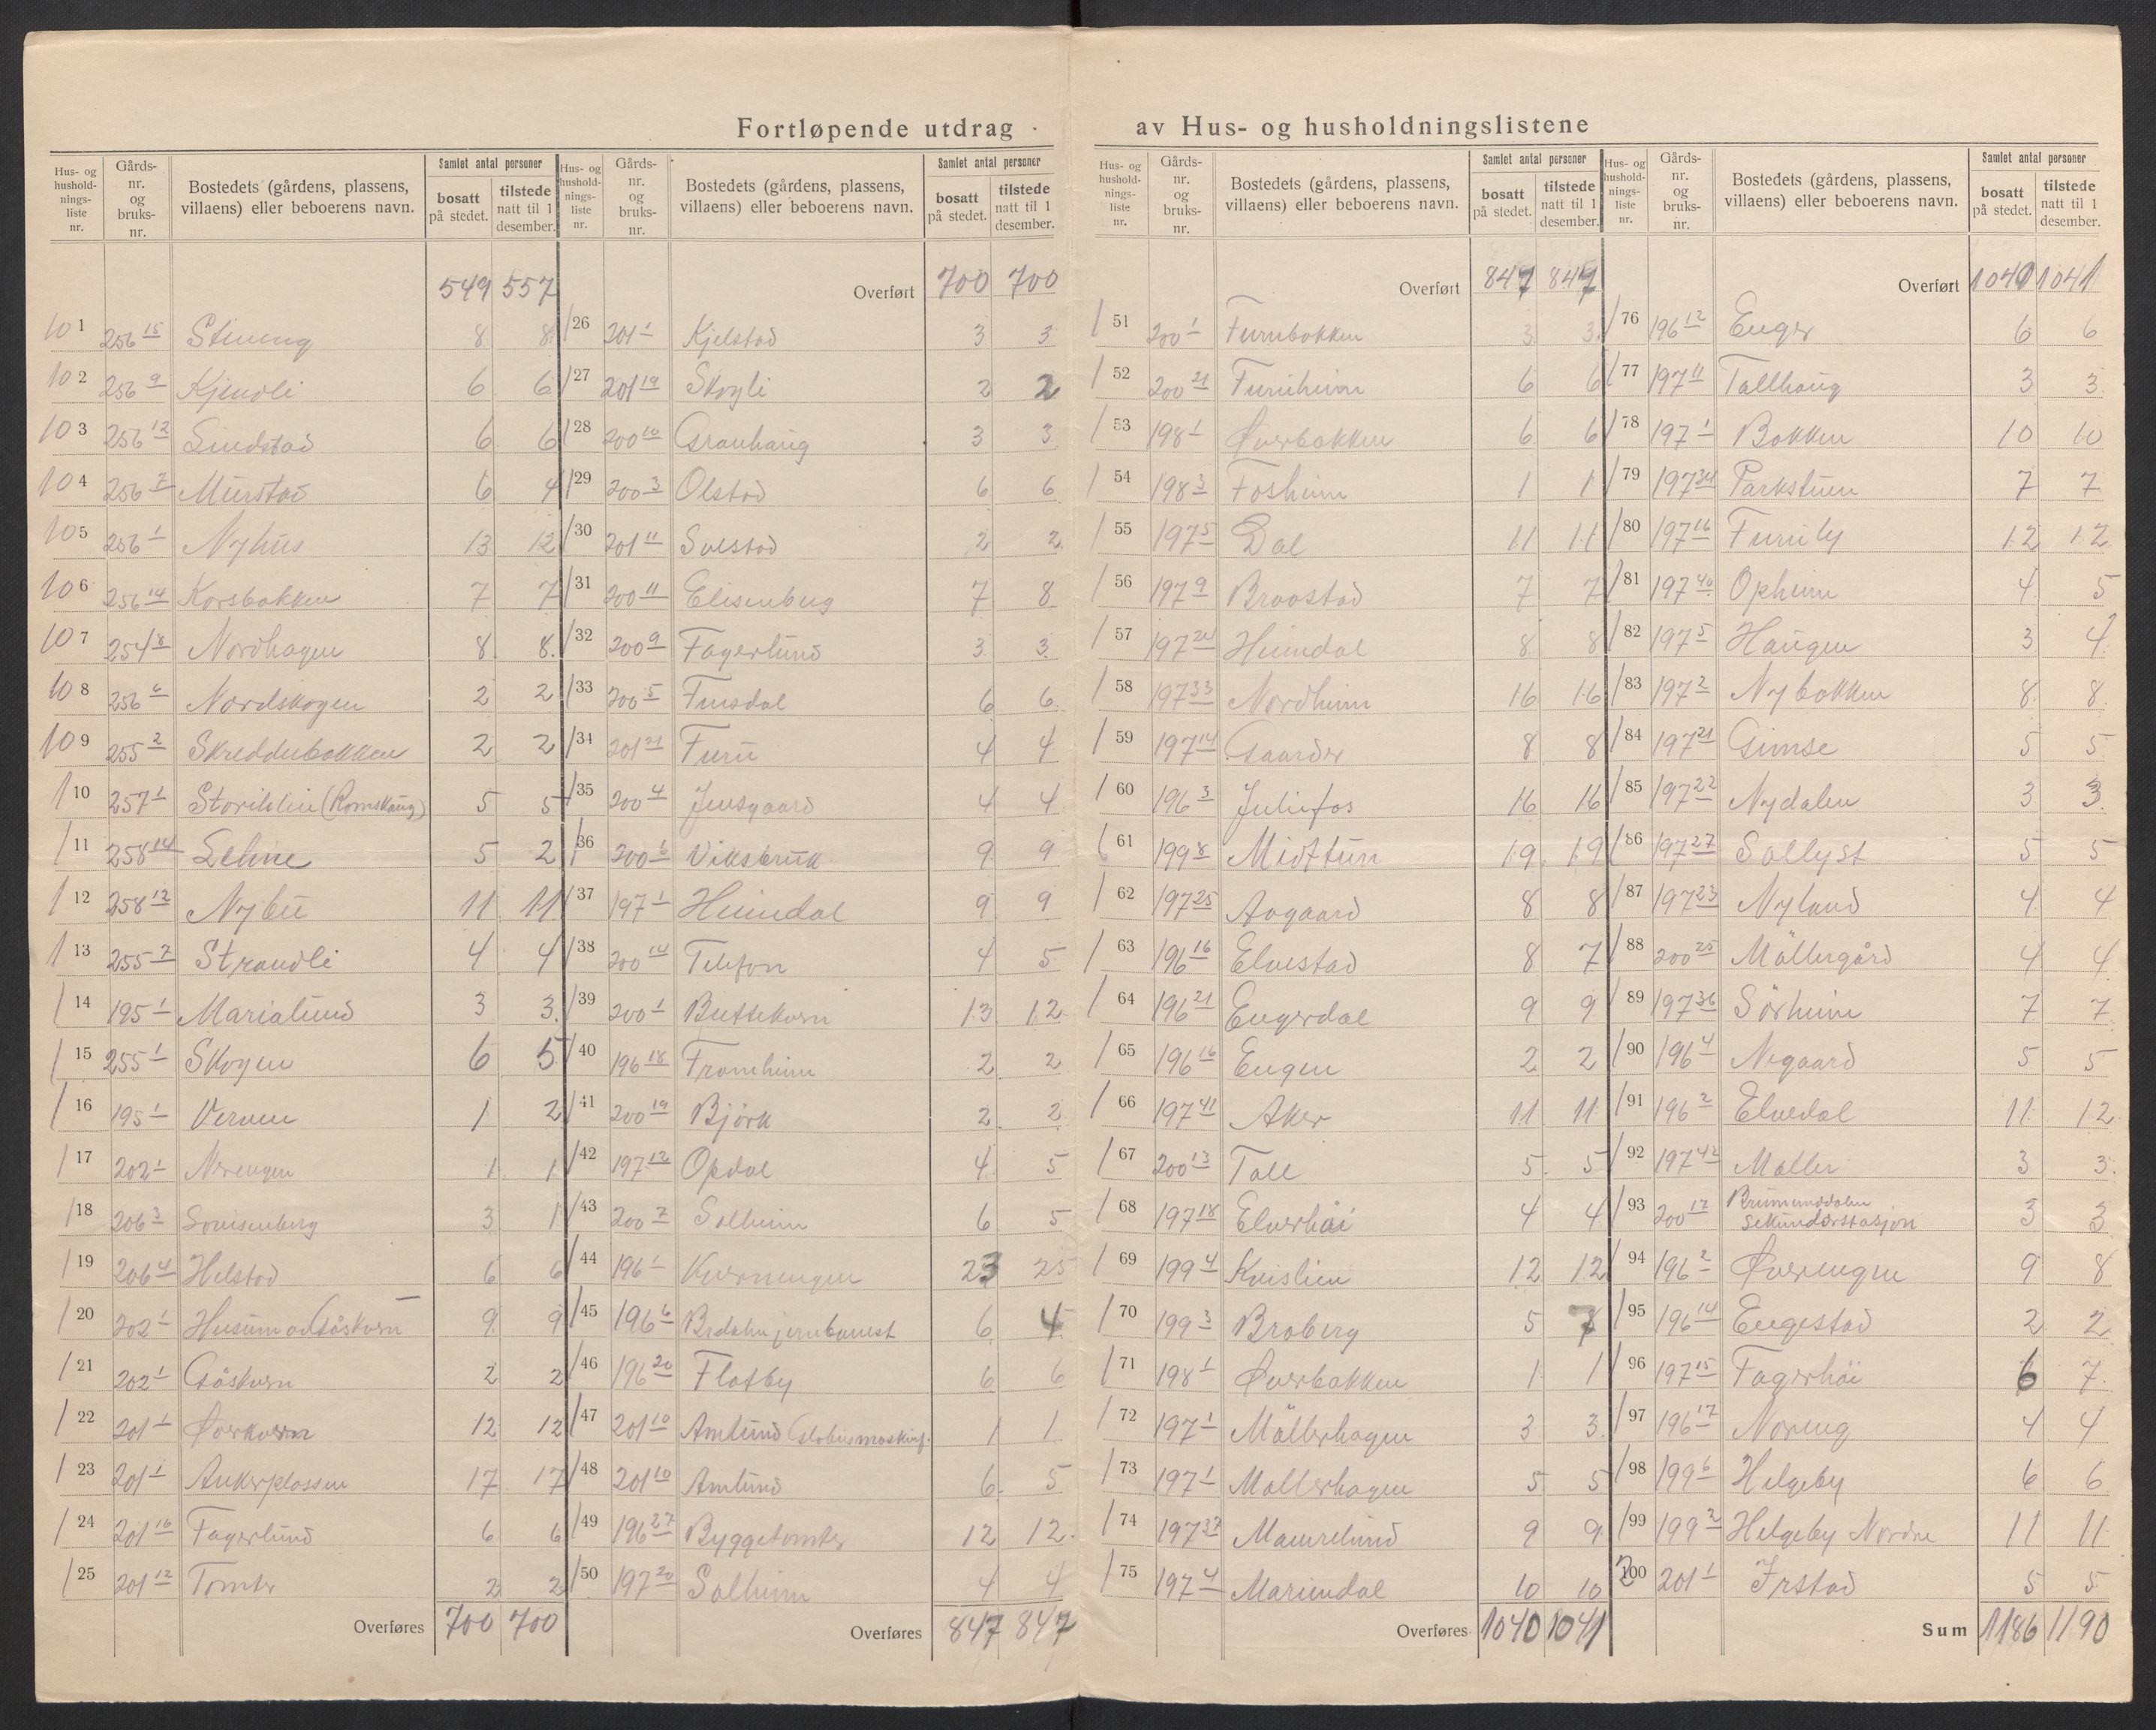 Fortløpende utdrag av Hus- og husholdningslistene
Hus- og husholdningsliste nr. | Gårds-nr. og bruks-nr. | Bostedets (gårdens, plassens, villaens) eller beboerens navn. | Samlet antal personer | bosatt på stedet. | tilstede natt til 1 desember.
549 557
10 1 256 15 Stineng 8 8
10 2 256 9 Kjendli 6 6
10 3 256 12 Lindstad 6 6
10 4 256 7 Murstad 6 4
10 5 256 1 Nyhus 13 12
10 6 256 14 Korsbakken 7 7
10 7 254 8 Nordhagen 8 8
10 8 256 6 Nordskogen 2 2
10 9 255 2 Skredderbakken 2 2
1 10 257 1 Storihlin (Romskaug) 5 5
1 11 258 14 Lehne 5 2
1 12 258 12 Nybu 11 11
1 13 255 7 Strandli 4 4
1 14 195 1 Marialund 3 3
1 15 255 1 Skogen 6 5
1 16 195 1 Verven 1 2
1 17 202 1 Nerengen 1 1
1 18 206 3 Louisenberg 3 1
1 19 206 4 Helstad 6 6
1 20 202 1 Husum av Gåskorn 9 9
1 21 202 1 Gåskorn 2 2
1 22 201 1 Øverkvern 12 12
1 23 201 1 Ankerplassen 17 17
1 24 201 16 Fagerlund 6 6
1 25 201 12 Tomter 2 2
Overføres 700 700
Hus- og husholdningsliste nr. | Gårds-nr. og bruks-nr. | Bostedets (gårdens, plassens, villaens) eller beboerens navn. | Samlet antal personer | bosatt på stedet. | tilstede natt til 1 desember.
Overført 700 700
1 26 201 1 Kjelstad 3 3
1 27 201 19 Skogli 2 2
1 28 200 10 Granhaug 3 3
1 29 200 3 Olstad 6 6
1 30 201 11 Solstad 2 2
1 31 200 11 Elisenberg 7 8
1 32 200 9 Fagerlund 3 3
1 33 200 5 Finsdal 6 6
1 34 201 21 Furu 4 4
1 35 200 4 Jensgaard 4 4
1 36 200 6 Viksbruk 9 9
1 37 197 1 Heimdal 9 9
1 38 200 14 Telefon 4 5
1 39 200 1 Buttekvern 13 12
1 40 196 18 Framheim 2 2
1 41 200 19 Björk 2 2
1 42 197 12 Opdal 4 5
1 43 200 7 Solheim 6 5
1 44 196 1 Kvernengen 23 25
1 45 196 6 Brdalen jernbanest 6 4
1 46 196 20 Flatby 6 6
1 47 201 10 Amlund (Globusmaskinf. 1 1
1 48 201 10 Amlund 6 5
1 49 196 27 Byggetomter 12 12
1 50 197 20 Solheim 4 4
Overføres 847 847
Hus- og husholdningsliste nr. | Gårds-nr. og bruks-nr. | Bostedets (gårdens, plassens, villaens) eller beboerens navn. | Samlet antal personer | bosatt på stedet. | tilstede natt til 1 desember.
Overført 847 847
1 51 200 1 Furubakken 3 3
1 52 200 21 Furuheim 6 6
1 53 198 1 Øverbakken 6 6
1 54 198 3 Fosheim 1 1
1 55 197 5 Dal 11 11
1 56 197 9 Braastad 7 7
1 57 197 24 Heimdal 8 8
1 58 197 33 Nordheim 16 16
1 59 197 14 Gaarder 8 8
1 60 196 3 Juliefos 16 16
1 61 199 8 Midttun 19 19
1 62 197 25 Aagaard 8 8
1 63 196 16 Elvestad 8 7
1 64 196 21 Engerdal 9 9
1 65 196 16 Engen 2 2
1 66 197 41 Aker 11 11
1 67 200 13 Tall 5 5
1 68 197 18 Elverhöi 4 4
1 69 199 4 Kvislien 12 12
1 70 199 3 Broberg 5 7
1 71 198 1 Øverbakken 1 1
1 72 197 1 Möllerhagen 3 3
1 73 197 1 Möllerhagen 5 5
1 74 197 37 Maurelund 9 9
1 75 197 4 Mariendal 10 10
Overføres 1040 1041
Hus- og husholdningsliste nr. | Gårds-nr. og bruks-nr. | Bostedets (gårdens, plassens, villaens) eller beboerens navn. | Samlet antal personer | bosatt på stedet. | tilstede natt til 1 desember.
Overført 1040 1041
1 76 196 12 Enger 6 6
1 77 197 11 Tallhaug 3 3
1 78 197 1 Bakken 10 10
1 79 197 34 Parkstuen 7 7
1 80 197 16 Furuly 12 12
1 81 197 40 Opheim 4 5
1 82 197 5 Haugen 3 4
1 83 197 2 Nybakken 8 8
1 84 197 21 Gimse 5 5
1 85 197 22 Nydalen 3 3
1 86 197 27 Sollyst 5 5
1 87 197 23 Nyland 4 4
1 88 200 25 Möllergård 4 4
1 89 197 36 Sörheim 7 7
1 90 196 4 Nygaard 5 5
1 91 196 2 Elvedal 11 12
1 92 197 42 Møller 3 3
1 93 200 17 Brumunddalen Sekundærstasjon 3 3
1 94 196 2 Øverengen 9 8
1 95 196 14 Engestad 2 2
1 96 197 15 Fagerhöi 6 7
1 97 196 17 Noreng 4 4
1 98 199 6 Helgeby 6 6
1 99 199 2 Helgeby Nordre 11 11
200 201 1 Irstad 5 5
Sum 1186 1190